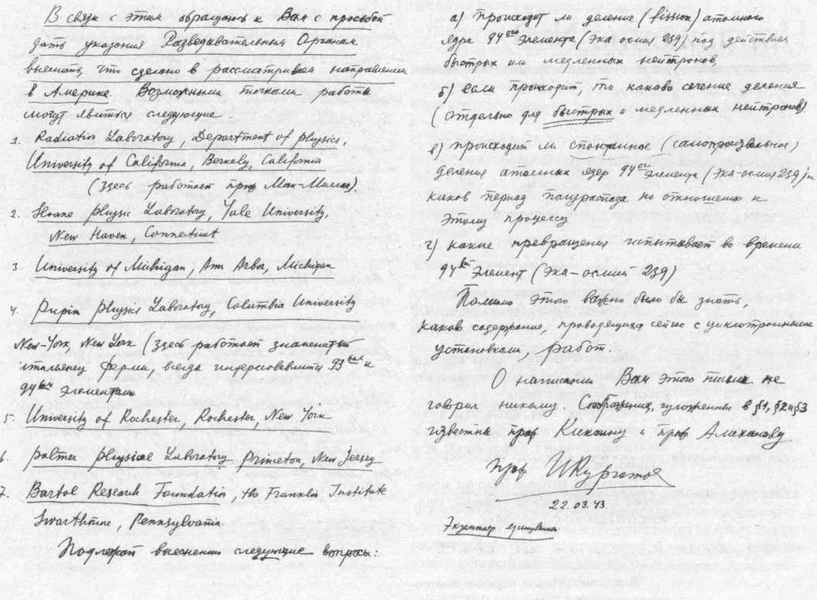 В связи с этим обращаюсь к Вам с просьбой
дать указания Разведывательным Органам
выяснить, что сделано в рассматриваемом направлении
в Америке. Возможными точками работы
могут явиться следующие.
1. Radiation Laboratory, Department of physics,
University of California, Berkely, California
(здесь работает проф Мак-Милан).
2. Sloane physic Laboratory, Yale University,
New Haven, Connecticut
3 University of Michigan, Ann Arbor, Michigan
4. Pupin physic Laboratory, Columbia University
New-York, New York (Здесь работает знаменитый
итальянец Ферми, всегда интересовавшийся 93 и
94 элементами
5. University of Rochester, Rochester, New York
6. palmer physical Laboratory Princeton, New Jersey
7. Bartol Research Foundation, the Franklin Institute
Swarthmore, Pennsylvania
Подлежат выяснению следующие вопросы:
а) происходит ли деление (fission) атомного
ядра 94ого элемента (эка-осмия 239) под действием
быстрых или медленных нейтронов,
б) если происходит, то каково сечение деления
(отдельно для быстрых и медленных нейтронов)
в) происходит ли спонтанное (самопроизвольное)
деление атомных ядер 94ого элемента (эка-осмия 239) и
каков период полураспада по отношению к
этому процессу
г) какие превращения испытывает во времени
94ый элемент (эка-осмий-239)
Помимо этого важно было бы знать,
каково содержание, проводящихся сейчас с циклотронными
установками, работ.
О написании Вам этого письма не
говорил никому. Соображения, изложенные в §1, §2 и §3
известны проф Кикоину и проф Алиханову
Проф ИКурчатов
22.03.43
Экземпляр единственный